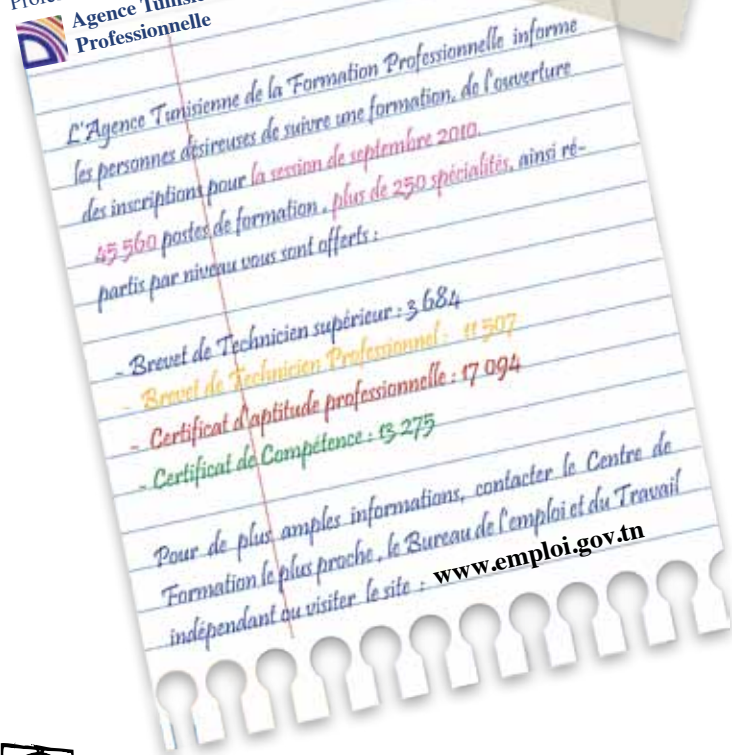 Agence
Professionnelle
L'Agence Tunisienne de la Formation Professionnelle informe
les personnes désireuses de suivre une formation, de l'ouverture
des inscriptions pour la session de septembre 2010.
45 560 postes de formation, plus de 250 spécialités, ainsi ré-
partis par niveau vous sont offerts :
- Brevet de Technicien supérieur : 3 684
- Brevet de Technicien Professionnel : 11 507
- Certificat d'aptitude professionnelle : 17 094
- Certificat de Compétence : 13 275
Pour de plus amples informations, contacter le Centre de
Formation le plus proche, le Bureau de l'emploi et du Travail
indépendant ou visiter le site : www.emploi.gov.tn